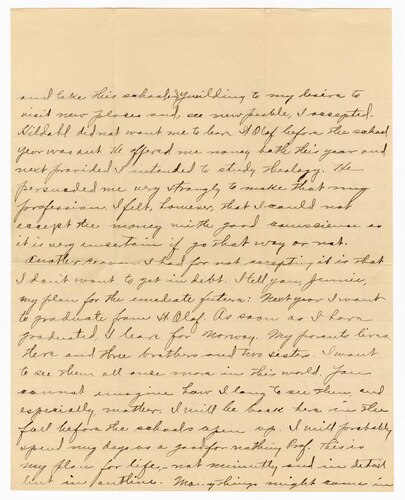 and take this school. Yuilding to my desire to
visit new places and see new people, I accepted.
Kildahl did not want me to leave St Olaf before the school
year was out. He offered me money both this year and
next provided I intended to study theology. He
persuaded me very strongly to make that my
profession. I felt, however, that I could not
except the money with good conscience as
it is very uncertain if go that way or not.
Another reason I had for not accepting it is that
I don't want to get in debt. I tell you, Jennie,
my plan for the imediate future: Next year I want
to graduate from St Olaf. As soon as I have
graduated, I leave for Norway. My parents live
there and three brothers and two sisters. I want
to see them all once more in this world. You
cannot imagine how I long to see them, and
especially, mother. I will be back here in the
fall before the schools open up. I will probably
spend my days as a good for nothing Prof. This is
my plan for life, - not minutely and in detail
but in outline. Many things might come in